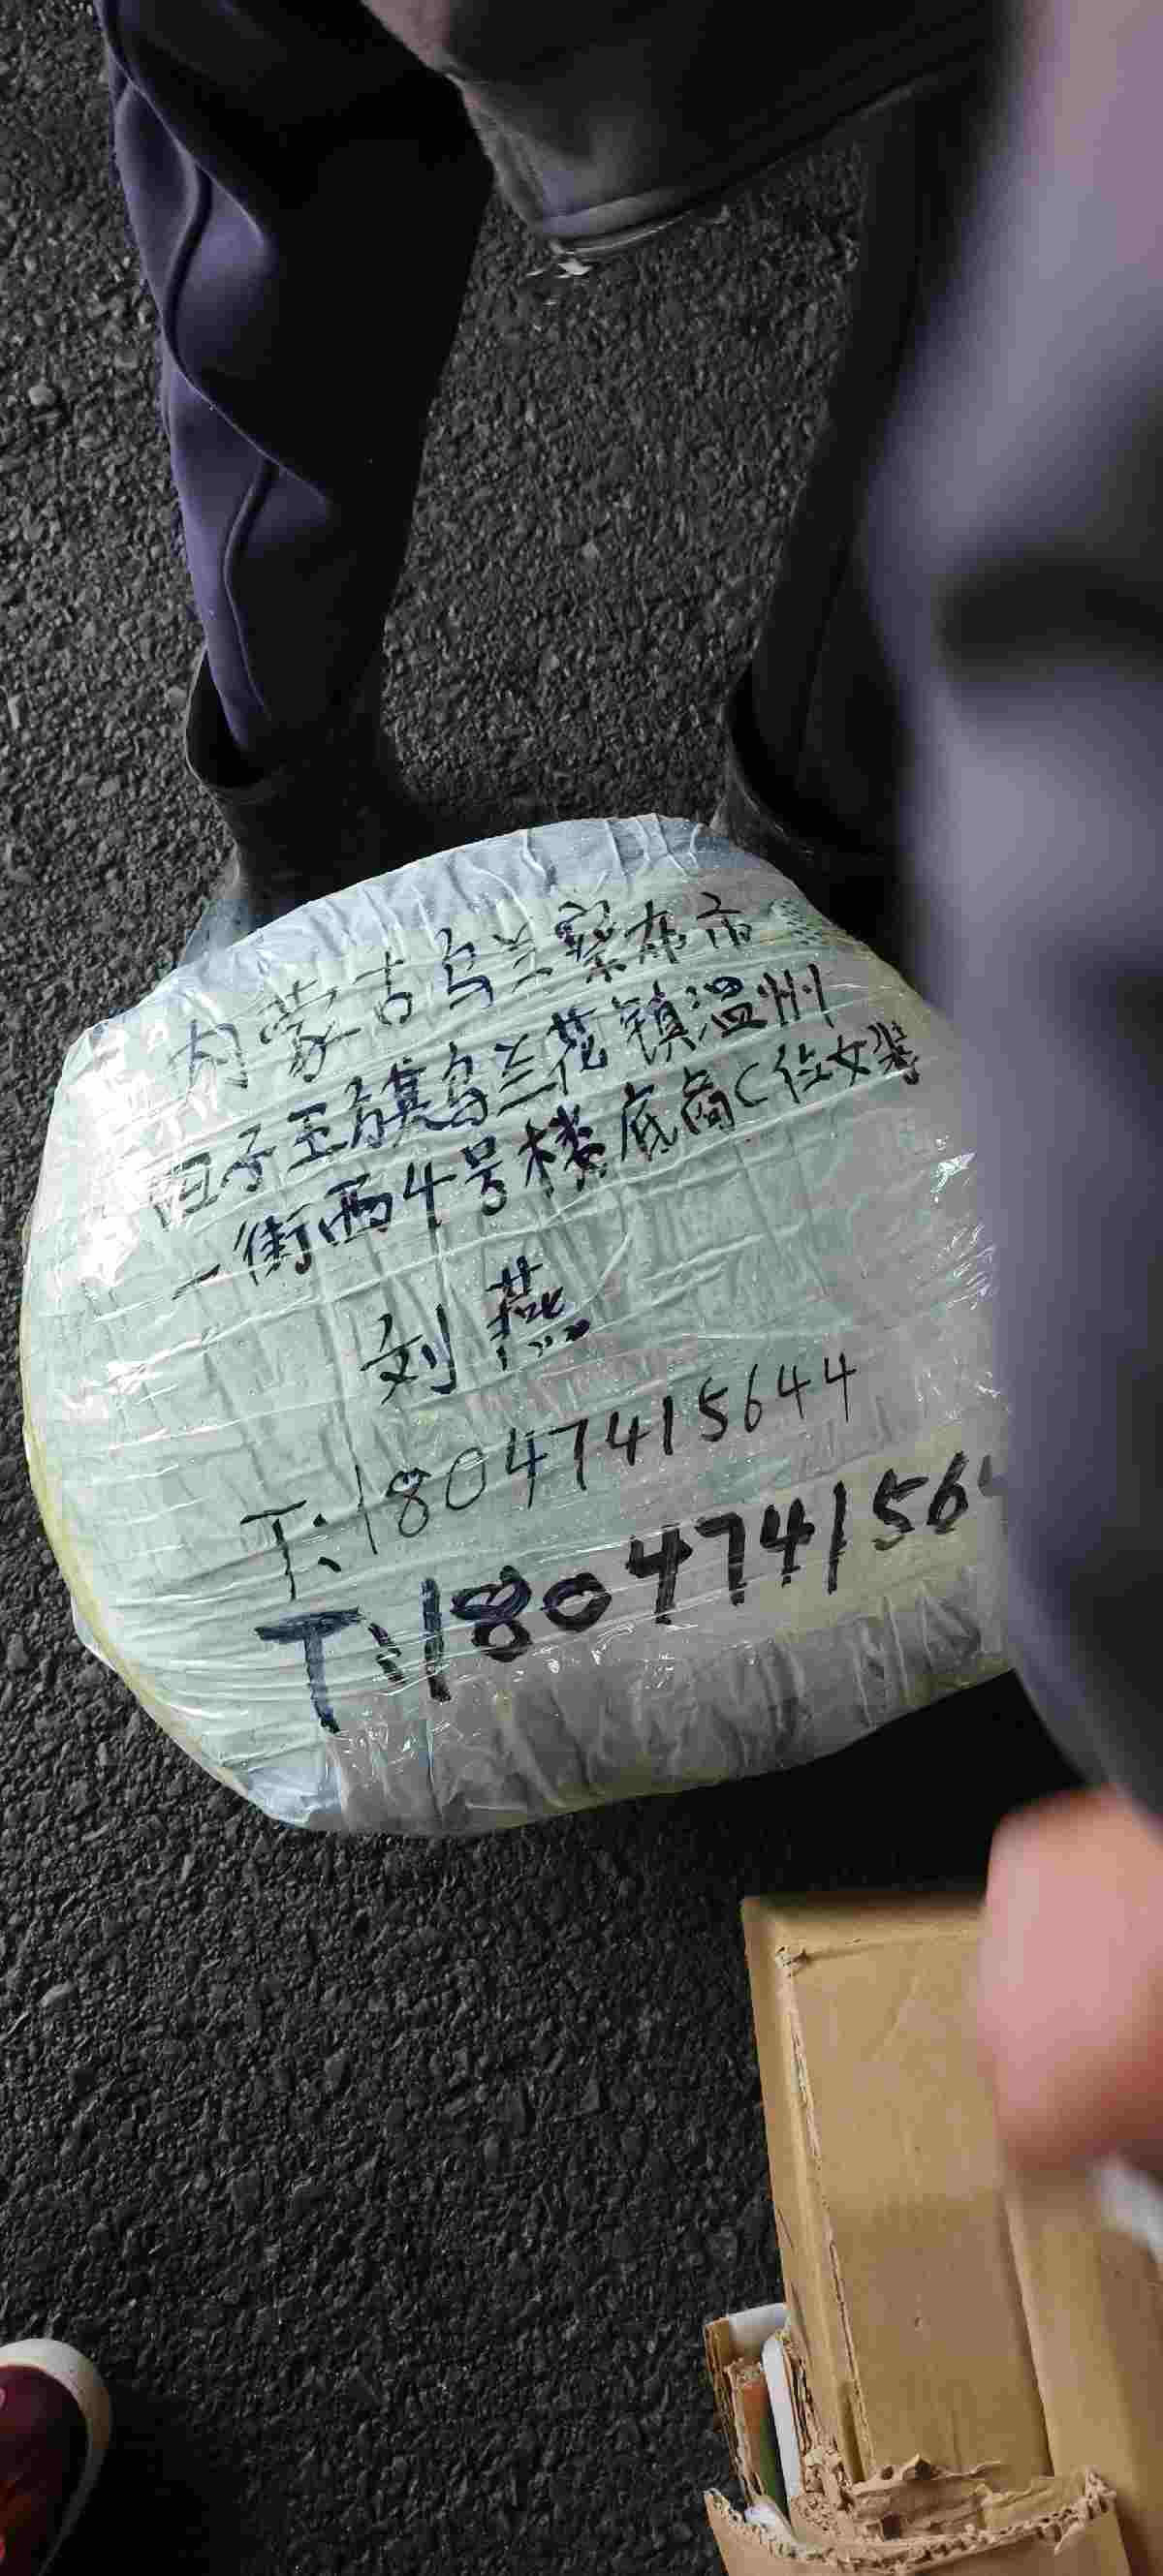 内蒙古乌兰察布市
四子王旗乌兰花镇温州
一街西4号楼底商C位女装
刘燕
T:18047415644
T:180474156